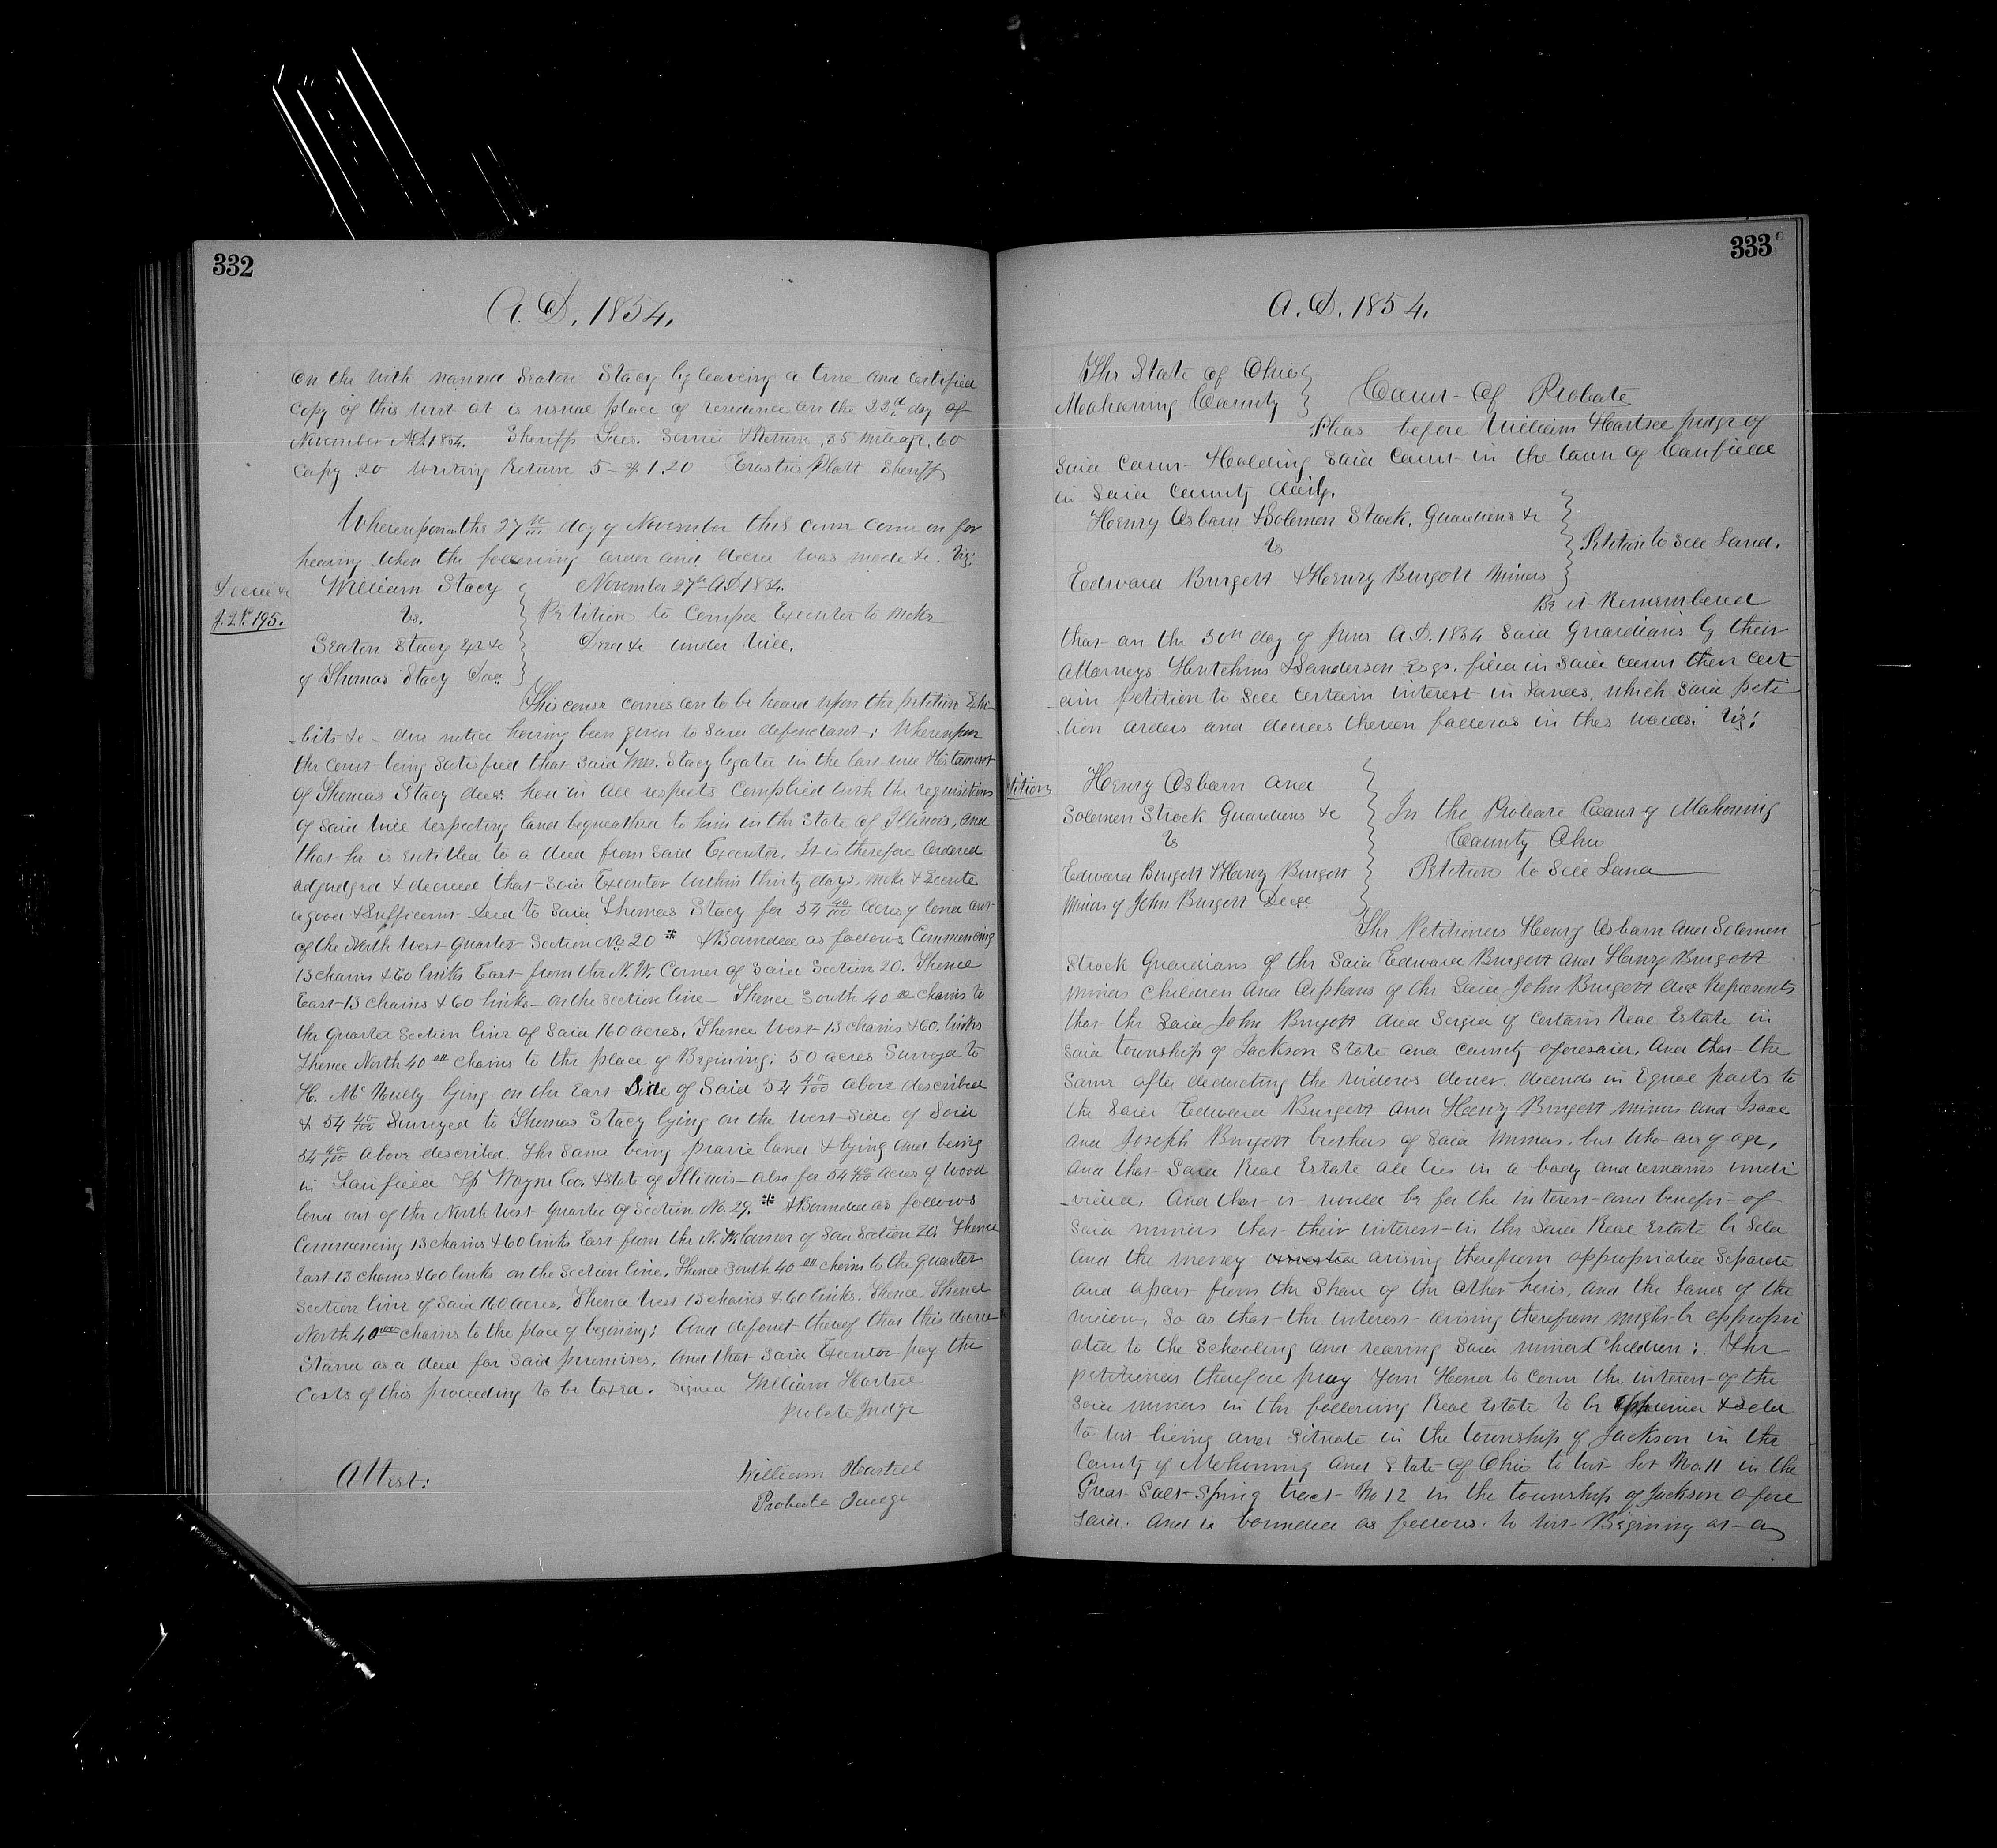 332
A. D. 1854.
on the with named Seaton Stacy by leaveing a true and certified
copy of this writ at is usual place of residence on the 22d day of
November AD. 1854. Sheriffs Fees. Service & Return ,35 mileage, 60
Copy 20 Writing Return 5 - $1.20 Erastus Platt Sheriff
Whereupon on the 27th day of November this cause came on for
hearing when the following order and decree was made &c. Viz:
Decree &c
J. 2. P. 195.
William Stacy
vs.
Seaton Stacy Exr &c
of Thomas Stacy Decd
November 27th AD 1854.
Petition to Compel Executor to make
Deed &c under Will.
This cause comes on to be heard upon the petition Exhi-
-bits &c - due notice having been given to said defendant; Whereupon
the court being satisfied that said Wm. Stacy legatee in the last will & testament
of Thomas Stacy decd. had in all respects complied with the requisitions
of said will respecting land bequeathed to him in the State of Illinois, and
that he is entitled to a deed from said Executor. It is therefore ordered
adjudged & decreed that said Executor within thirty days, make & execute
a good & sufficient deed to said Thomas Stacy for 54 40/100 acres of land out
of the North West Quarter Section No. 20 * & Bounded as follows Commencing
13 chains & 60 links East from the N.W. Corner of said Section 20. Thence
East 13 chains & 60 links on the section line - Thence South 40 chains to
the quarter section line of said 160 acres, Thence West 13 chains & 60 links
Thence North 40 00 chains to the place of Begining; 50 acres Surveyed to
H. McNully lying on the East Side of Said 54 40/100 above described
& 54 40/100 Surveyed to Thomas Stacy lying on the west side of Said
54 40/100 above described. The same being prarie land & lying and being
in Fairfield Tp Wayne Co. & State of Illinois - also for 54 40/100 acres of wood
land out of the North West Quarter of Section No. 29. * & Bounded as follows
Commencing 13 chains & 60 links East from the N.W. Corner of Said Section 20. Thence
East 13 chains & 60 links on the section line. Thence South 40 00 chains to the quarter
section line of said 160 acres. Thence West 13 chains & 60 links. Thence. Thence
North 40 00 chains to the place of begining; And default thereof that this decree
Stand as a deed for said premises. And that said Executor pay the
Costs of this proceeding to be taxed. Signed William Hartzel
Probate Judge
Attest:
William Hartzel
Probate Judge
333
A. D. 1854.
The State of Ohio
Mahoning County
Court of Probate
Pleas before William Hartzel judge of
said Court Holding said Court in the town of Canfield
in said County daily.
Henry Osbarn & Solomon Strock, Guardians &c
vs
Edward Burgett & Henry Burgett Minors
Petition to Sell Land.
Be it Remembered
that on the 30th day of June A.D. 1854 said Guardians by their
Attorneys Hutchins & Sanderson Esqs. filed in said Court their cert
-ain petition to sell certain interest in lands, which said peti
-tion orders and decrees thereon follows in thes words. Viz:
tition
Henry Osbarn and
Solomon Strock Guardians &c
vs
Edward Burgett & Henry Burgett
Minors of John Burgett Decd.
In the Probate Court of Mahoning
County Ohio
Petition to Sell Land
The Petitioners Henry Osbarn and Solomon
Strock Guardians of the said Edward Burgett and Henry Burgett
minors children and orphans of the said John Burgett decd Represents
that the said John Burgett died Seized of certain Real Estate in
said township of Jackson State and county aforesaid, And that the
same after deducting the widows dower. decends in Equal parts to
the said Edward Burgett and Henry Burgett minors and Isaac
and Joseph Burgett brothers of said minors, but who are of age,
and that Said Real Estate all lies in a body and remains undi
-vided, And that it would be for the interest and benefit of
said minors that their interest in the said Real Estate be sold
and the money invested arising therefrom appropriated separate
and apart from the share of the other heirs, and the land of the
widow, so as that the interest arising therefrom might be appropri
ated to the schooling and rearing said minor Children: The
petitioners therefore pray Your Honor to cause the interest of the
said minors in the following Real Estate to be appraised & sold
to wit lieing and situate in the township of Jackson in the
County of Mahoning and State of Ohio to wit Lot No. 11 in the
Great Salt Spring tract No 12 in the township of Jackson afore
said. And is bounded as follows. to wit Begining at a